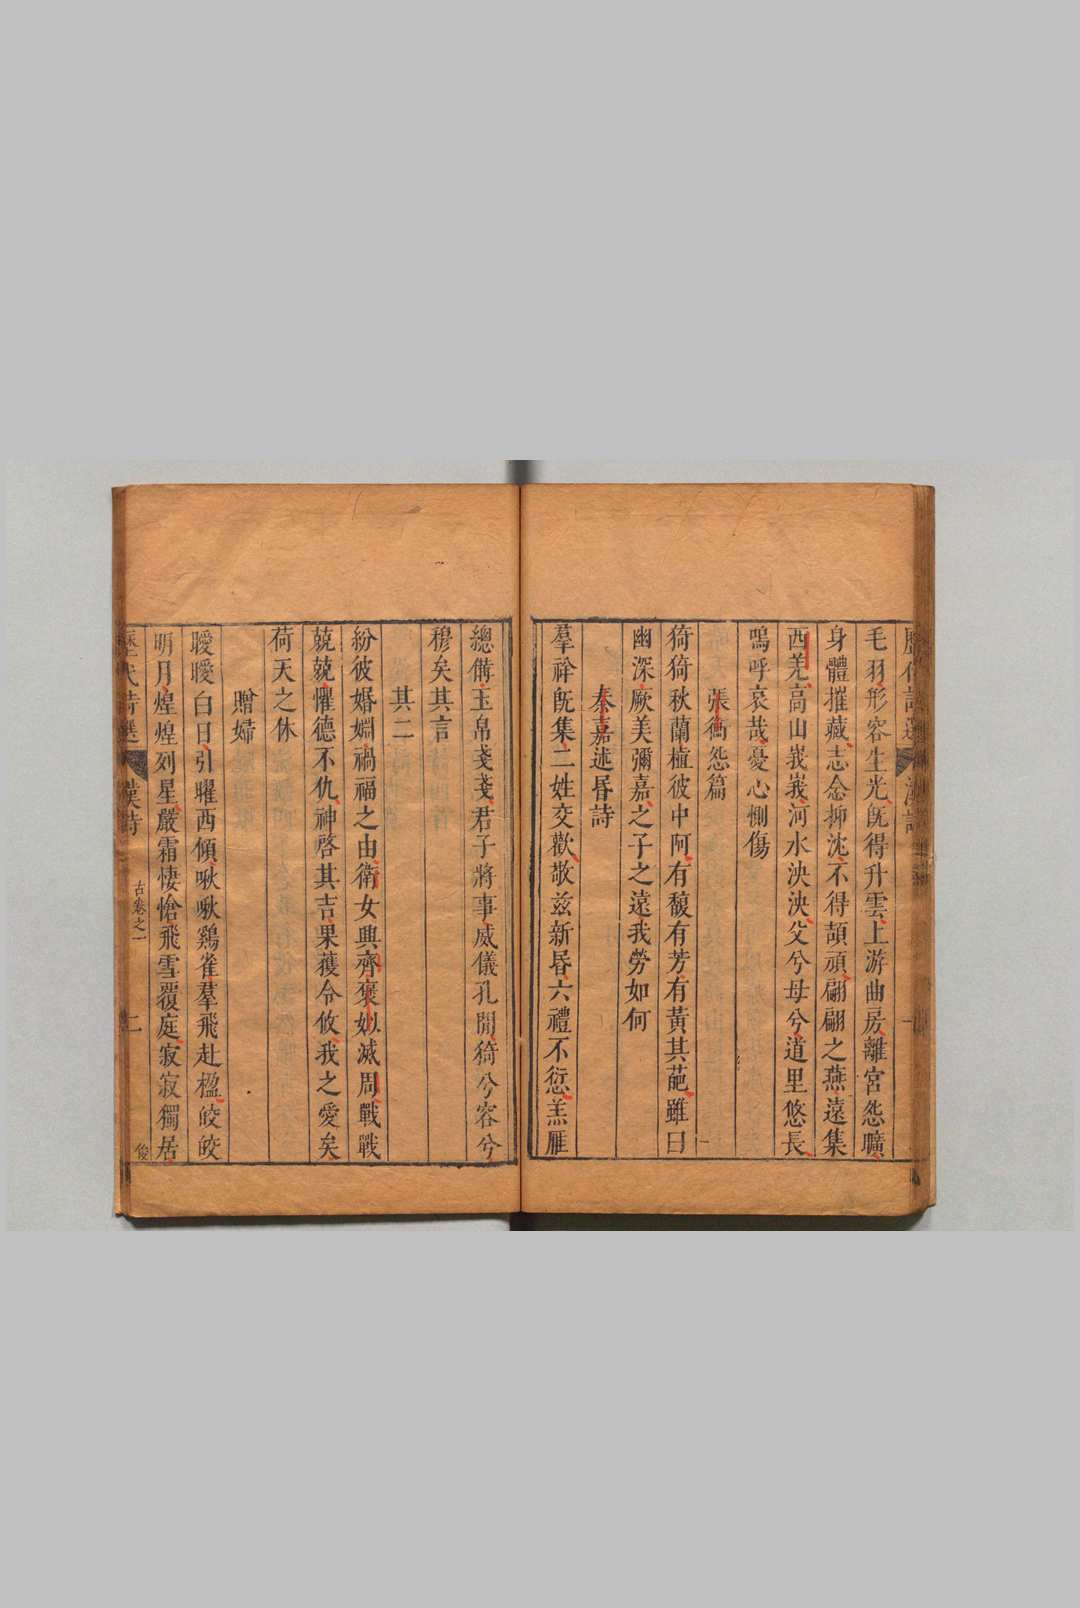 毛羽形容生光既得升雲上游曲房離宮怨曠
身體摧藏志念抑沈不得頡頏翩翩之燕遠集
西羌高山峩峩河水泱泱父兮母兮道里悠長
嗚呼哀哉憂心惻傷
張衡怨篇
猗猗秋蘭植彼中阿有馥有芳有黃其葩雖曰
幽深厥美彌嘉之子之遠我勞如何
秦嘉述昏詩
羣祥旣集二姓交歡敬兹新昏六禮不愆羔雁
總備玉帛戔戔君子將事威儀孔閒猗兮容兮
穆矣其言
其二
紛彼婚姻禍福之由衛女興齊褒姒滅周戰戰
兢兢懼德不仇神啓其吉果獲令攸我之愛矣
荷天之休
贈婦
曖曖白日引曜西傾啾啾鷄雀羣飛赴楹皎皎
明月煌煌列星嚴霜悽愴飛雪覆庭寂寂獨居
歷代詩選 漢詩 古卷之一 二 俊